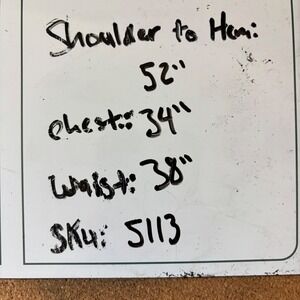 Shoulder to Hem:
52"
chest: 34"
waist: 38"
SKU: 5113